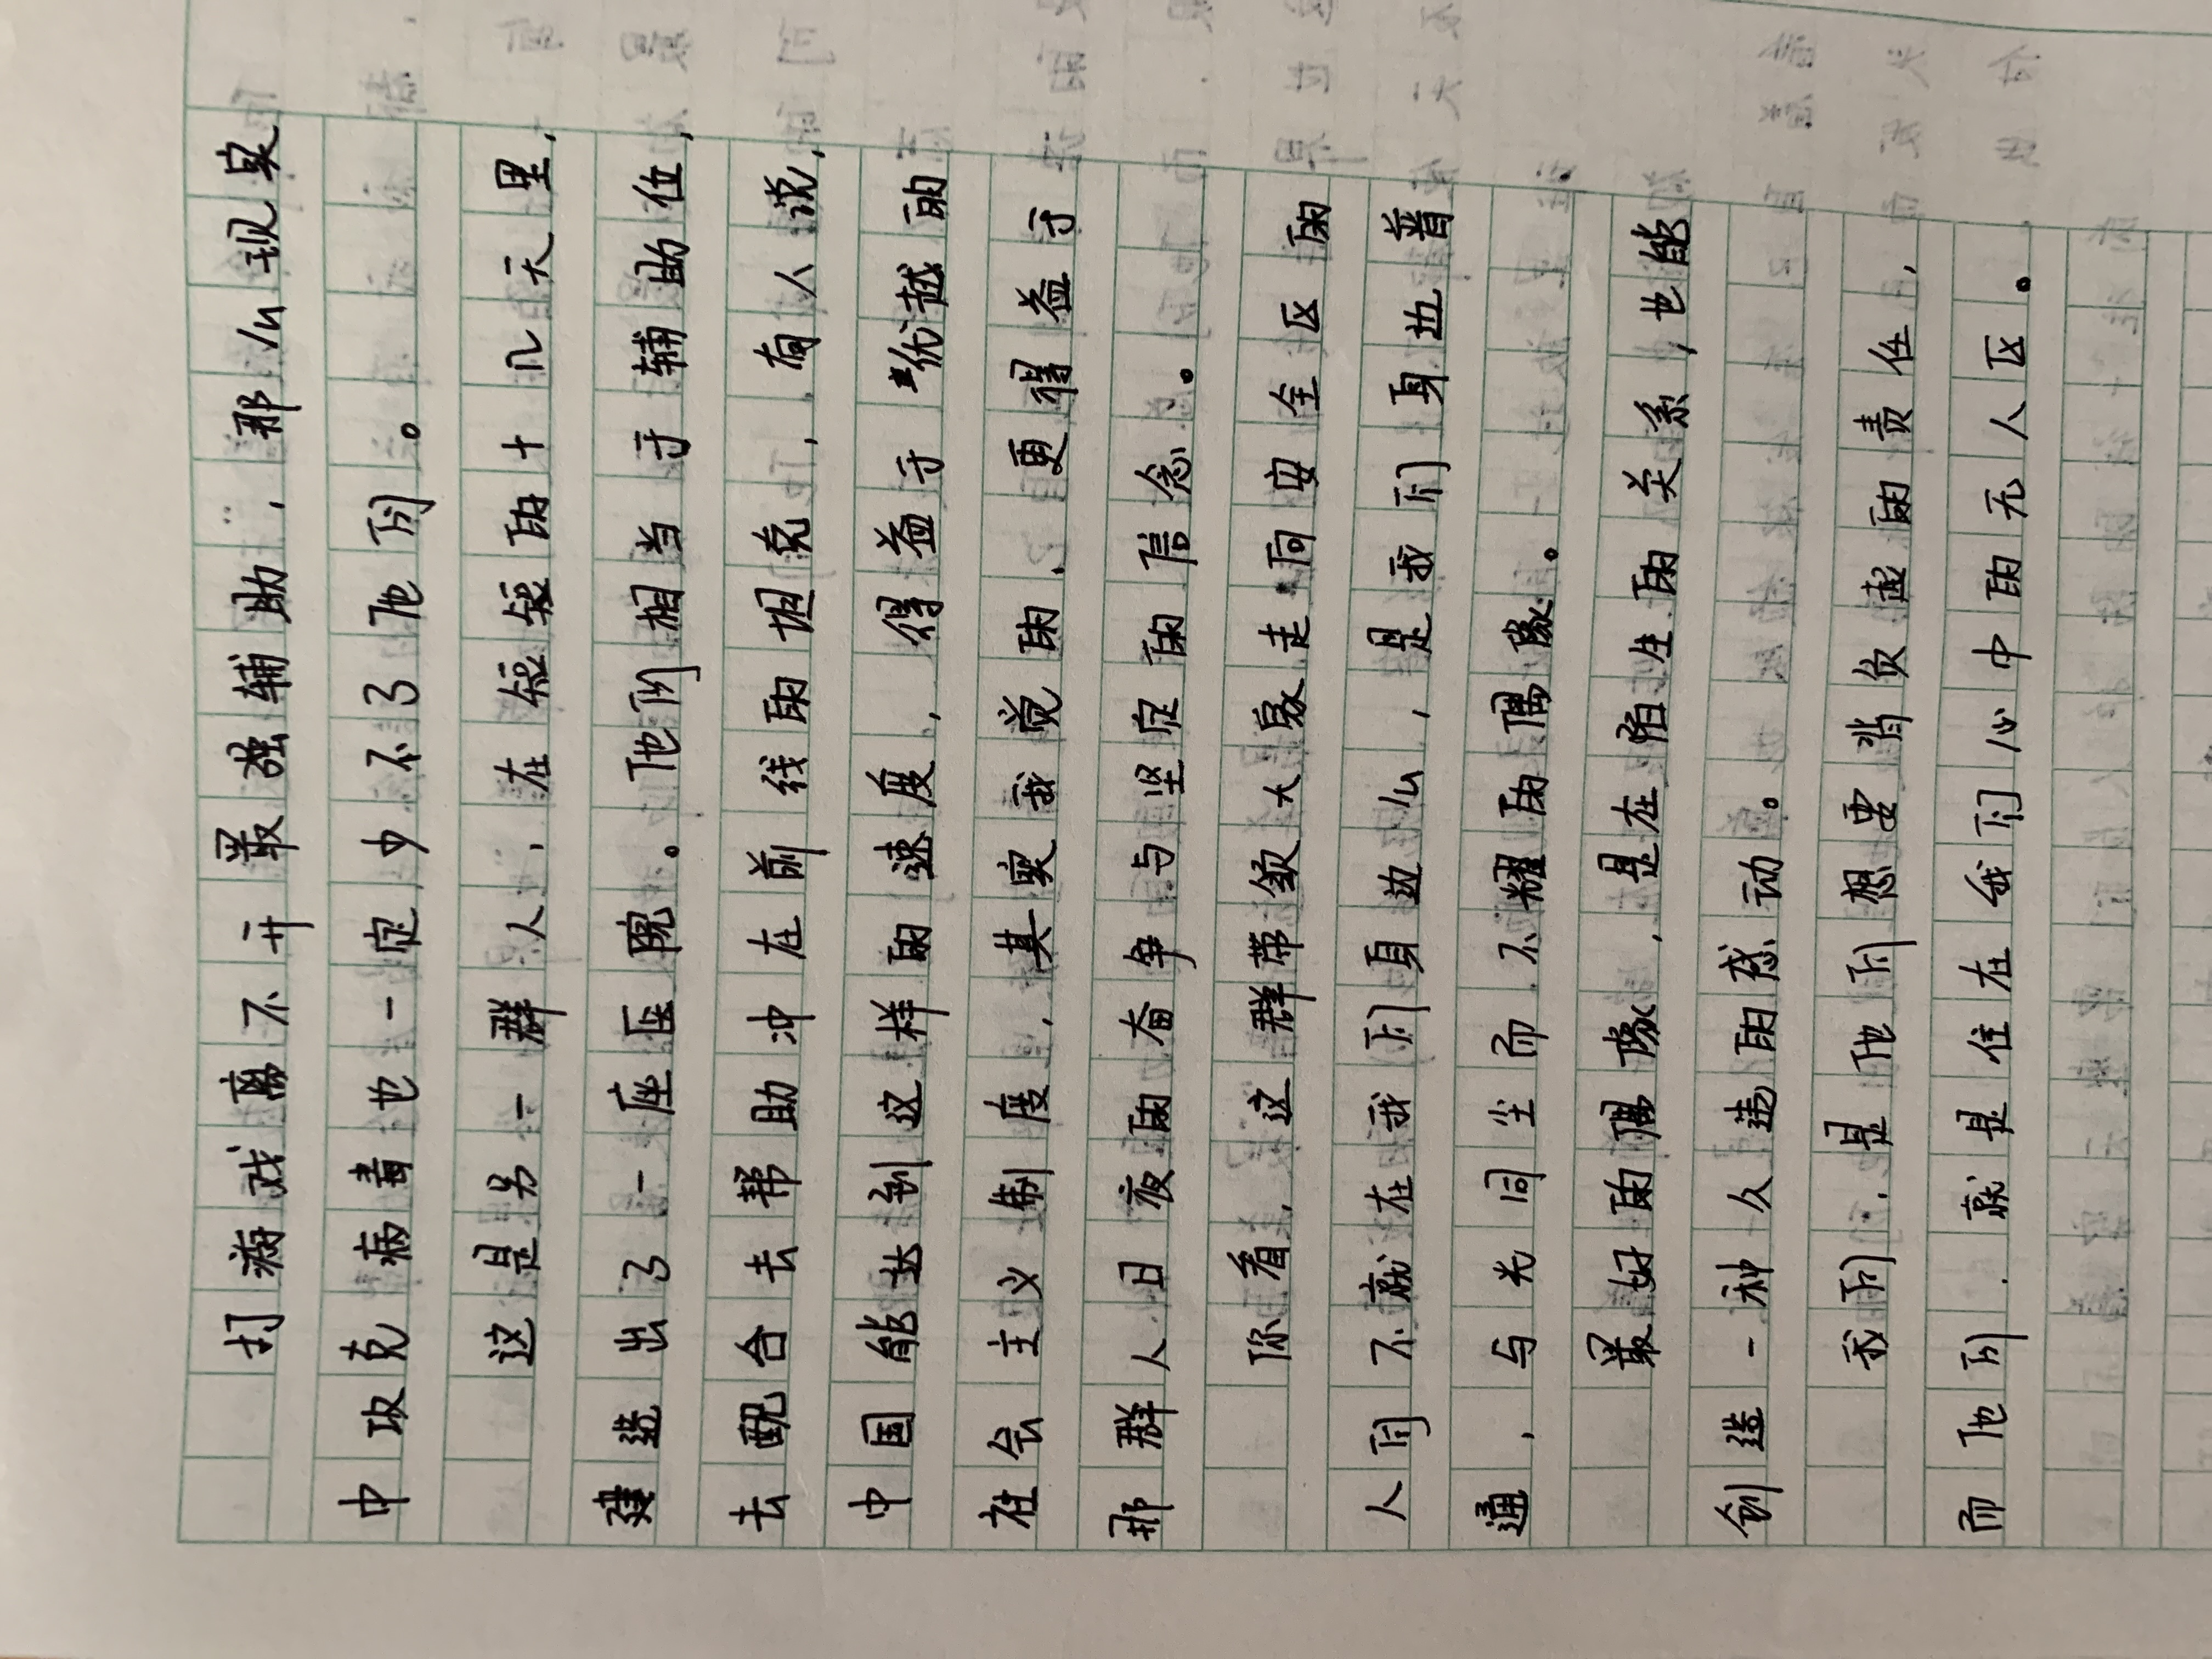 打游戏离不开最强辅助，那么现实
中攻克病毒也一定少不了他们。
这是另一群人，在短短的十几天里，
建造出了一座医院。他们相当于辅助位，
去配合去帮助冲在前线的坦克，有人说，
中国能达到这样的速度，得益于优越的
社会主义制度，其实我觉的，更得益于
那群人日夜的奋争与坚定的信念。
你看，这群带领大家走向安全区的
人们不就在我们身边么，是我们身边普
通，与光同尘而不耀的偶像。
最好的偶像，是在陌生的关系，也能
创造一种久违的感动。
我们，是他们想要背负起的责任，
而他们，就是住在我们心中的无人区。